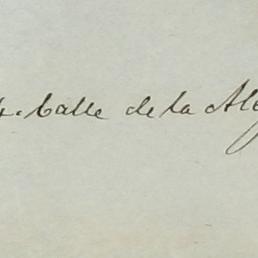 4. Calle de la Ale